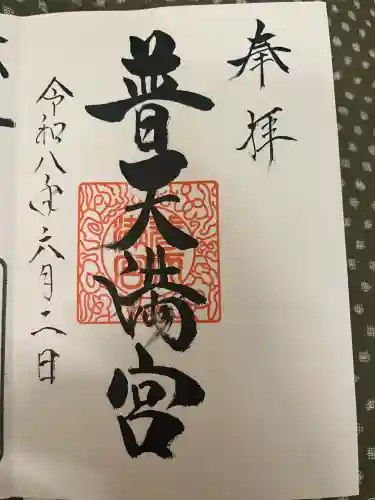 奉拝
普天満宮
令和八年六月二日